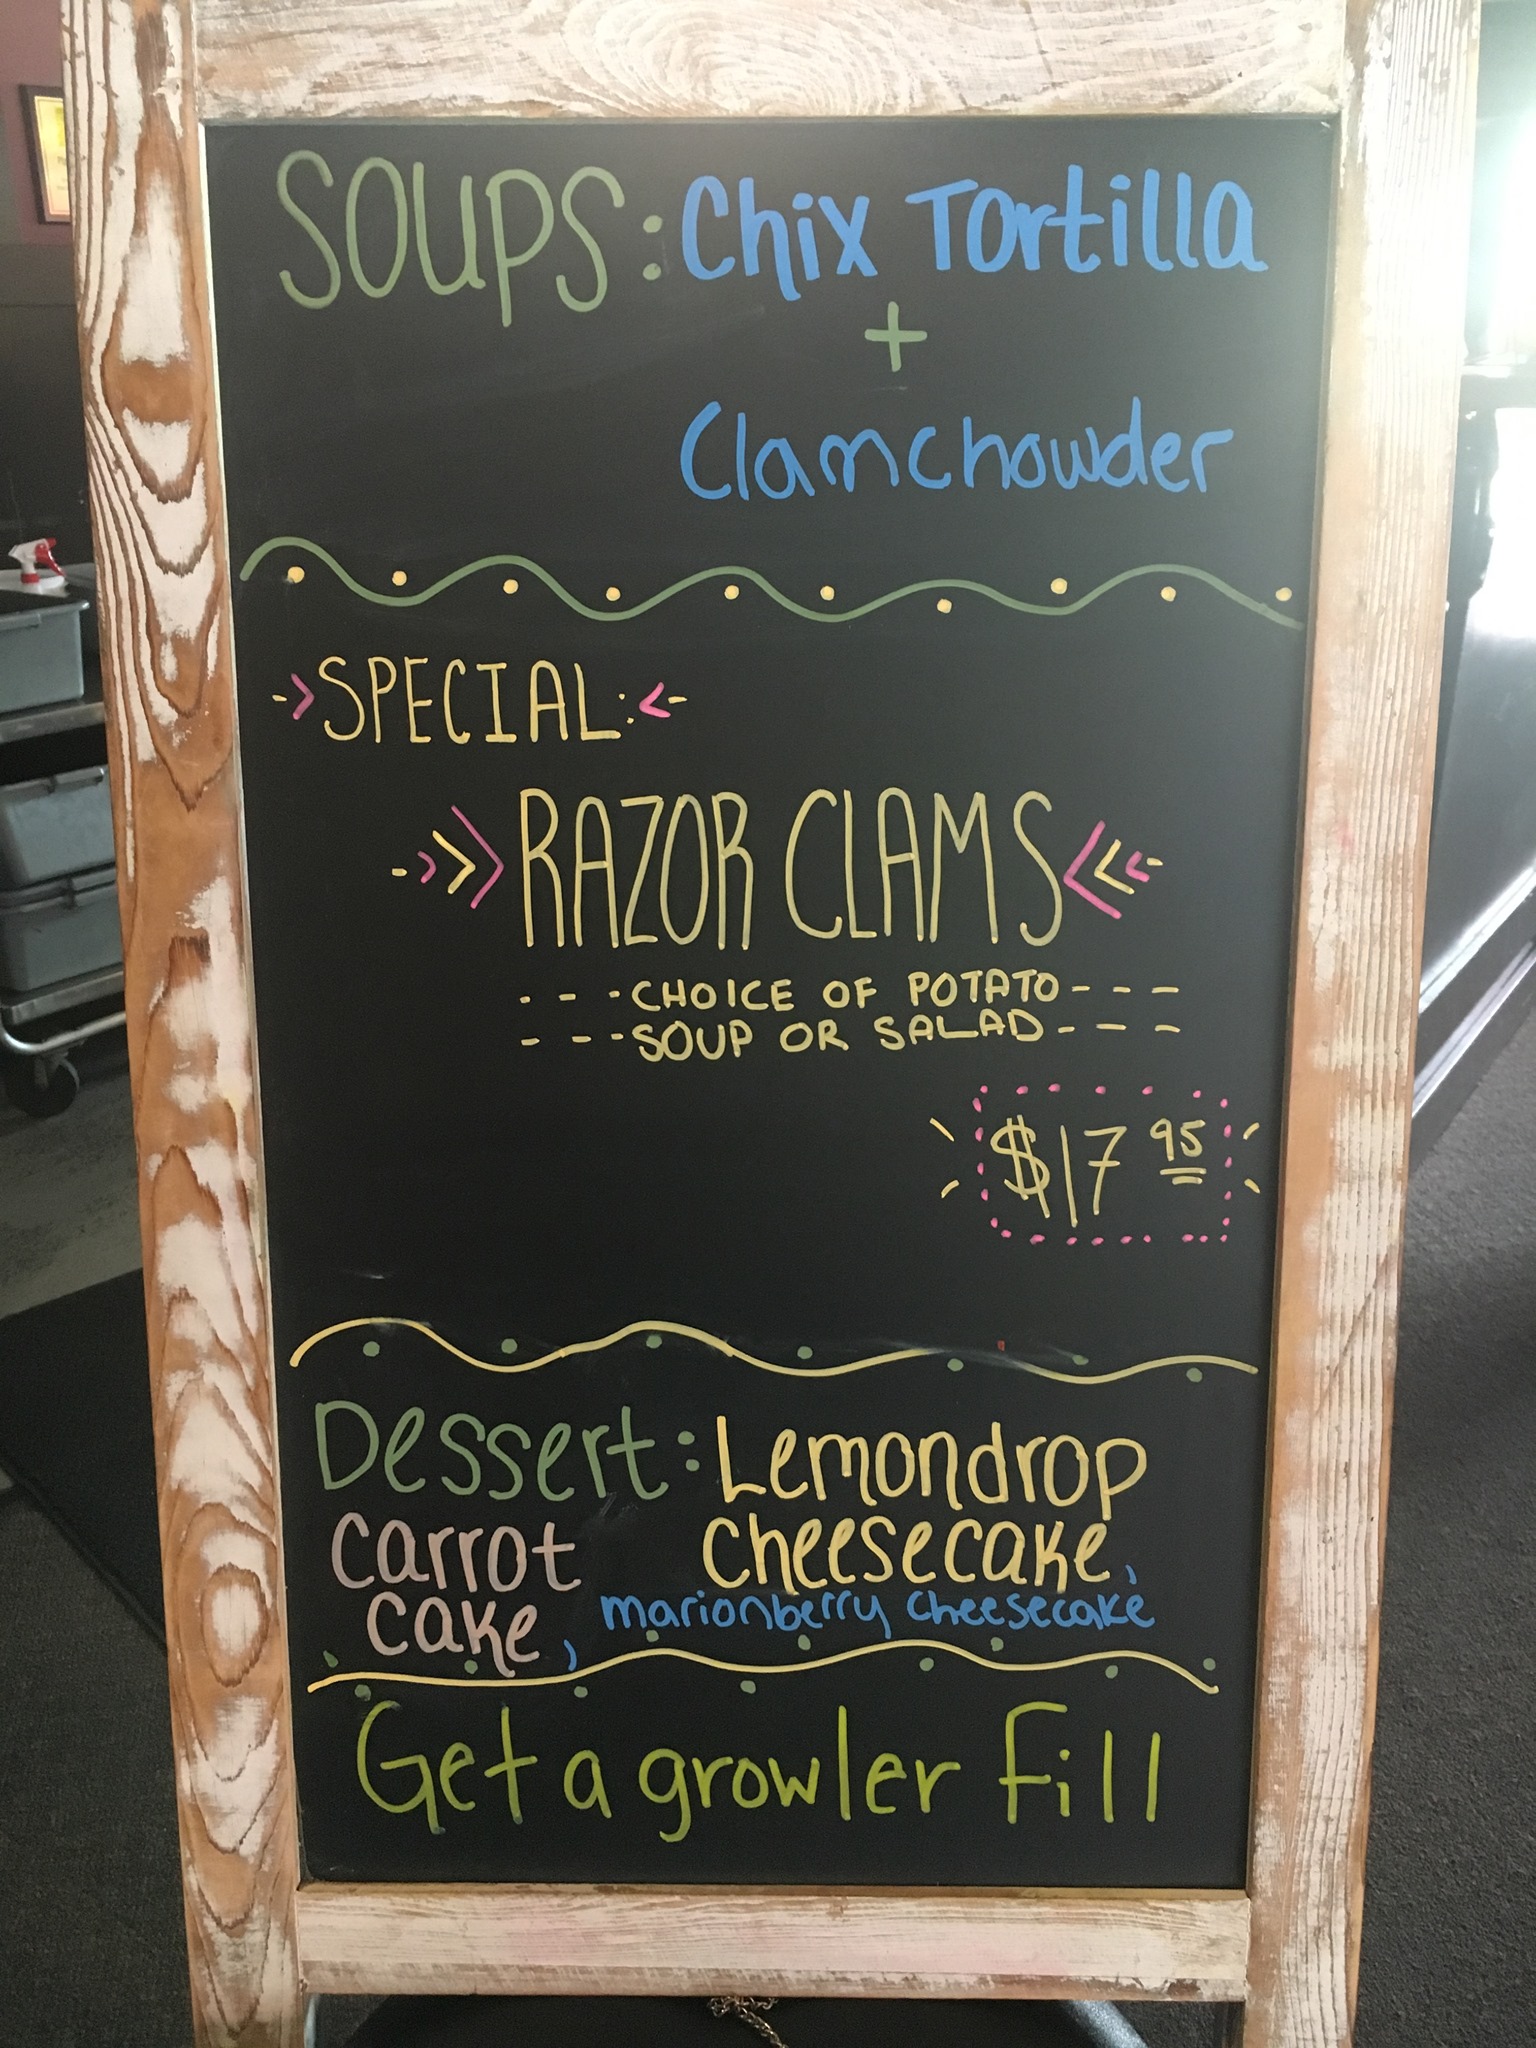 SOUPS: Chix Tortilla
+
Clamchowder
SPECIAL:
RAZOR CLAMS
CHOICE OF POTATO
SOUP OR SALAD
$17 95
Dessert: Lemondrop
Cheesecake,
Carrot
Cake,
marionberry cheesecake
Get a growler fill